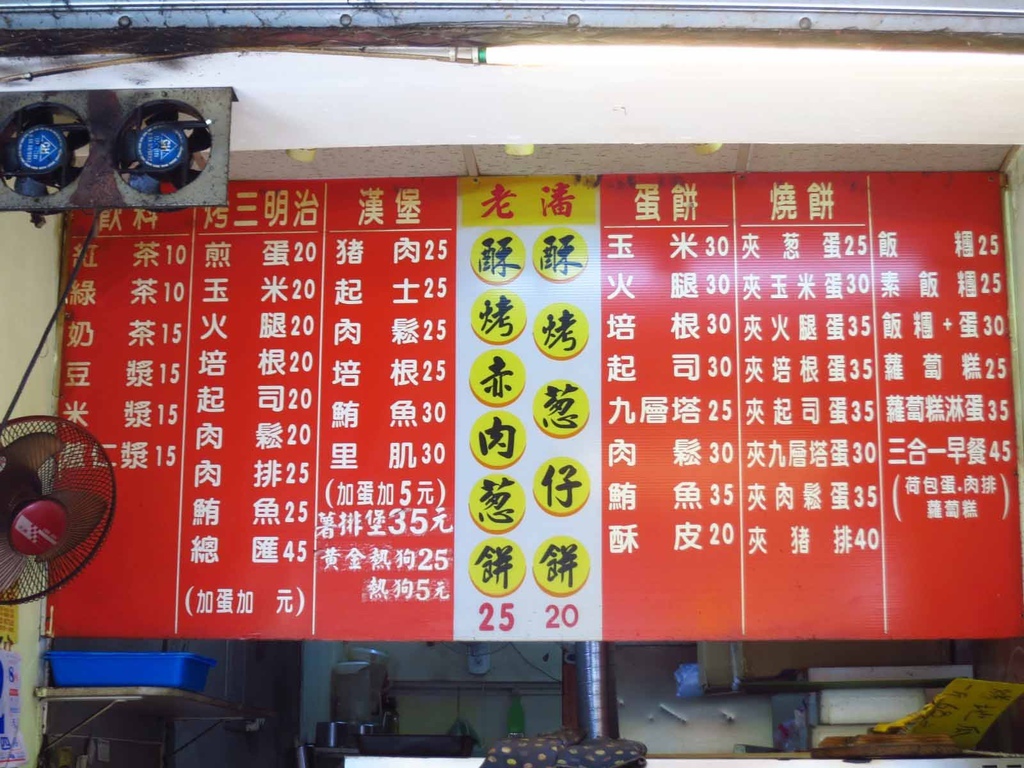 飲料
紅茶10
綠茶10
奶茶15
豆漿15
米漿15
漿15
烤三明治
煎蛋20
玉米20
火腿20
培根20
起司20
肉鬆20
肉排25
鮪魚25
總匯45
(加蛋加 元)
漢堡
猪肉25
起士25
肉鬆25
培根25
鮪魚30
里肌30
(加蛋加5元)
薯排堡35元
黃金熱狗25
熱狗5元
老潘
酥烤赤肉葱餅
25
酥烤葱仔餅
20
蛋餅
玉米30
火腿30
培根30
起司30
九層塔25
肉鬆30
鮪魚35
酥皮20
燒餅
夾葱蛋25
夾玉米蛋30
夾火腿蛋35
夾培根蛋35
夾起司蛋35
夾九層塔蛋30
夾肉鬆蛋35
夾猪排40
飯糰25
素飯糰25
飯糰+蛋30
蘿蔔糕25
蘿蔔糕淋蛋35
三合一早餐45
(荷包蛋.肉排
蘿蔔糕)